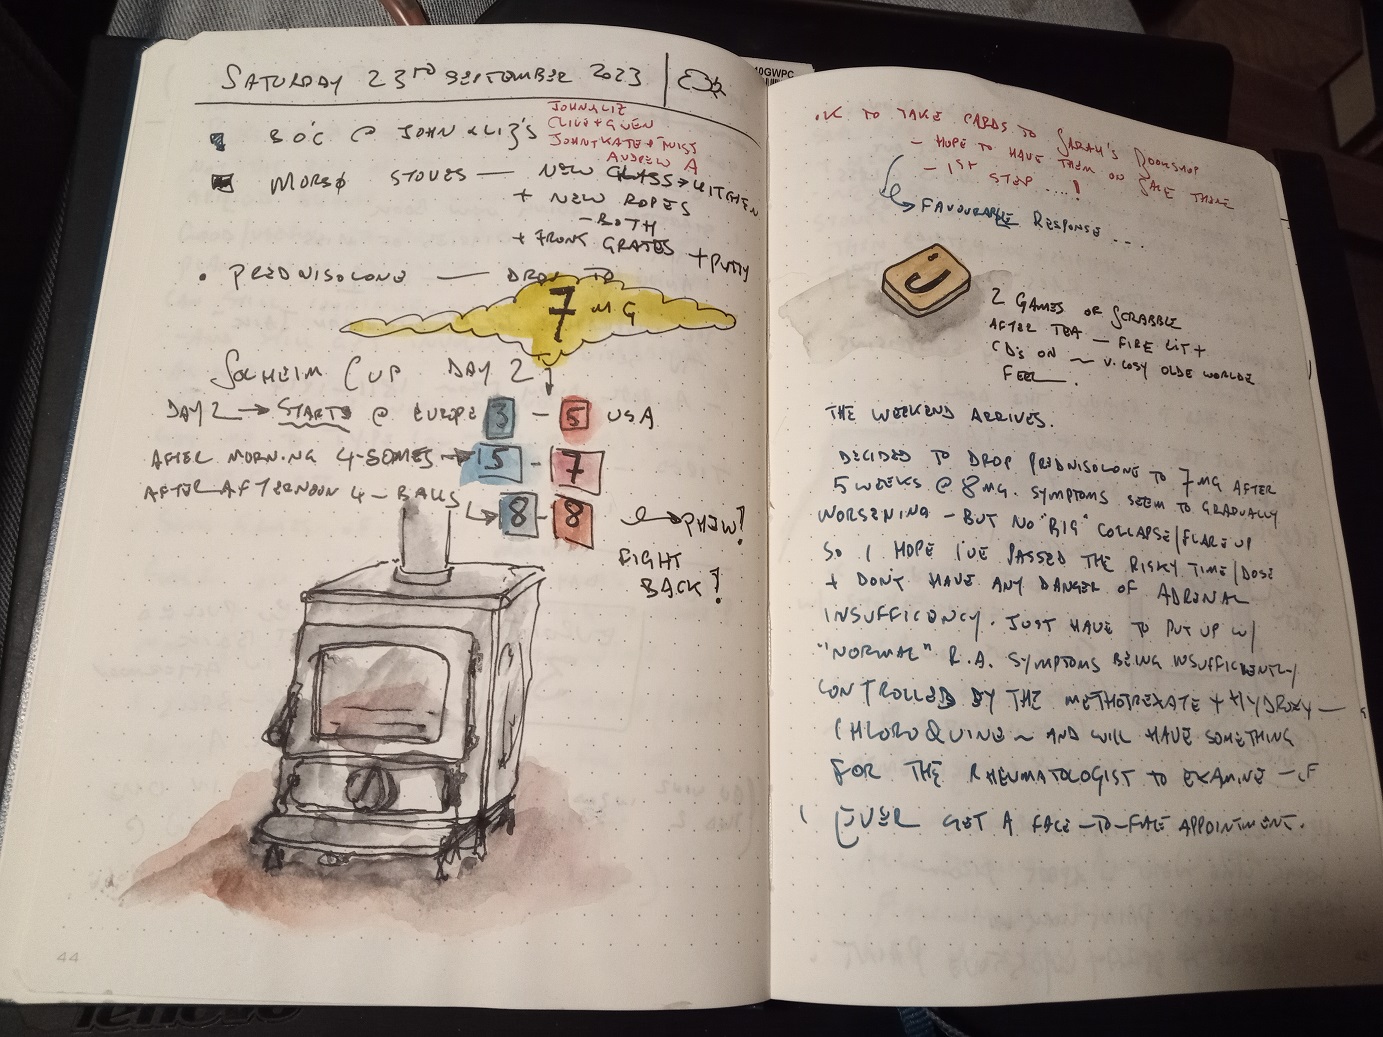 SATURDAY 23RD SEPTEMBER 2023
10GWPC
B.O'C @ JOHN & LIZ'S
JOHN & LIZ
CLIVE + GWEN
JOHN + KATE + TWISS
ANDREW A
MORSØ STOVES — NEW GLASS → KITCHEN
+ NEW ROPES
- BOTH
+ FRONT GRATES + PUTTY
• PREDNISOLONE — DROP TO
7 MG
SOLHEIM CUP DAY 2
DAY 2 → STARTS @ EUROPE 3 - 5 USA
AFTER MORNING 4-SOMES → 5 - 7
AFTER AFTERNOON 4-BALLS → 8 - 8 → PHEW!
FIGHT
BACK!
44
lenovo
OK TO TAKE CARDS TO SARAH'S BOOKSHOP
- HOPE TO HAVE THEM ON SALE THERE
- 1ST STEP ....!
FAVOURABLE RESPONSE ...
J
2 GAMES OF SCRABBLE
AFTER TEA — FIRE LIT +
CD'S ON ~ V. COSY OLDE WORLDE
FEEL.
THE WEEKEND ARRIVES.
DECIDED TO DROP PREDNISOLONE TO 7MG AFTER
5 WEEKS @ 8MG. SYMPTOMS SEEM TO GRADUALLY
WORSENING - BUT NO "BIG" COLLAPSE/FLARE UP
SO I HOPE I'VE PASSED THE RISKY TIME/DOSE
+ DON'T HAVE ANY DANGER OF ADRENAL
INSUFFICIENCY. JUST HAVE TO PUT UP W/
"NORMAL" R.A. SYMPTOMS BEING INSUFFICIENTLY
CONTROLLED BY THE METHOTREXATE + HYDROXY—
CHLOROQUINE ~ AND WILL HAVE SOMETHING
FOR THE RHEUMATOLOGIST TO EXAMINE - IF
I EVER GET A FACE-TO-FACE APPOINTMENT.